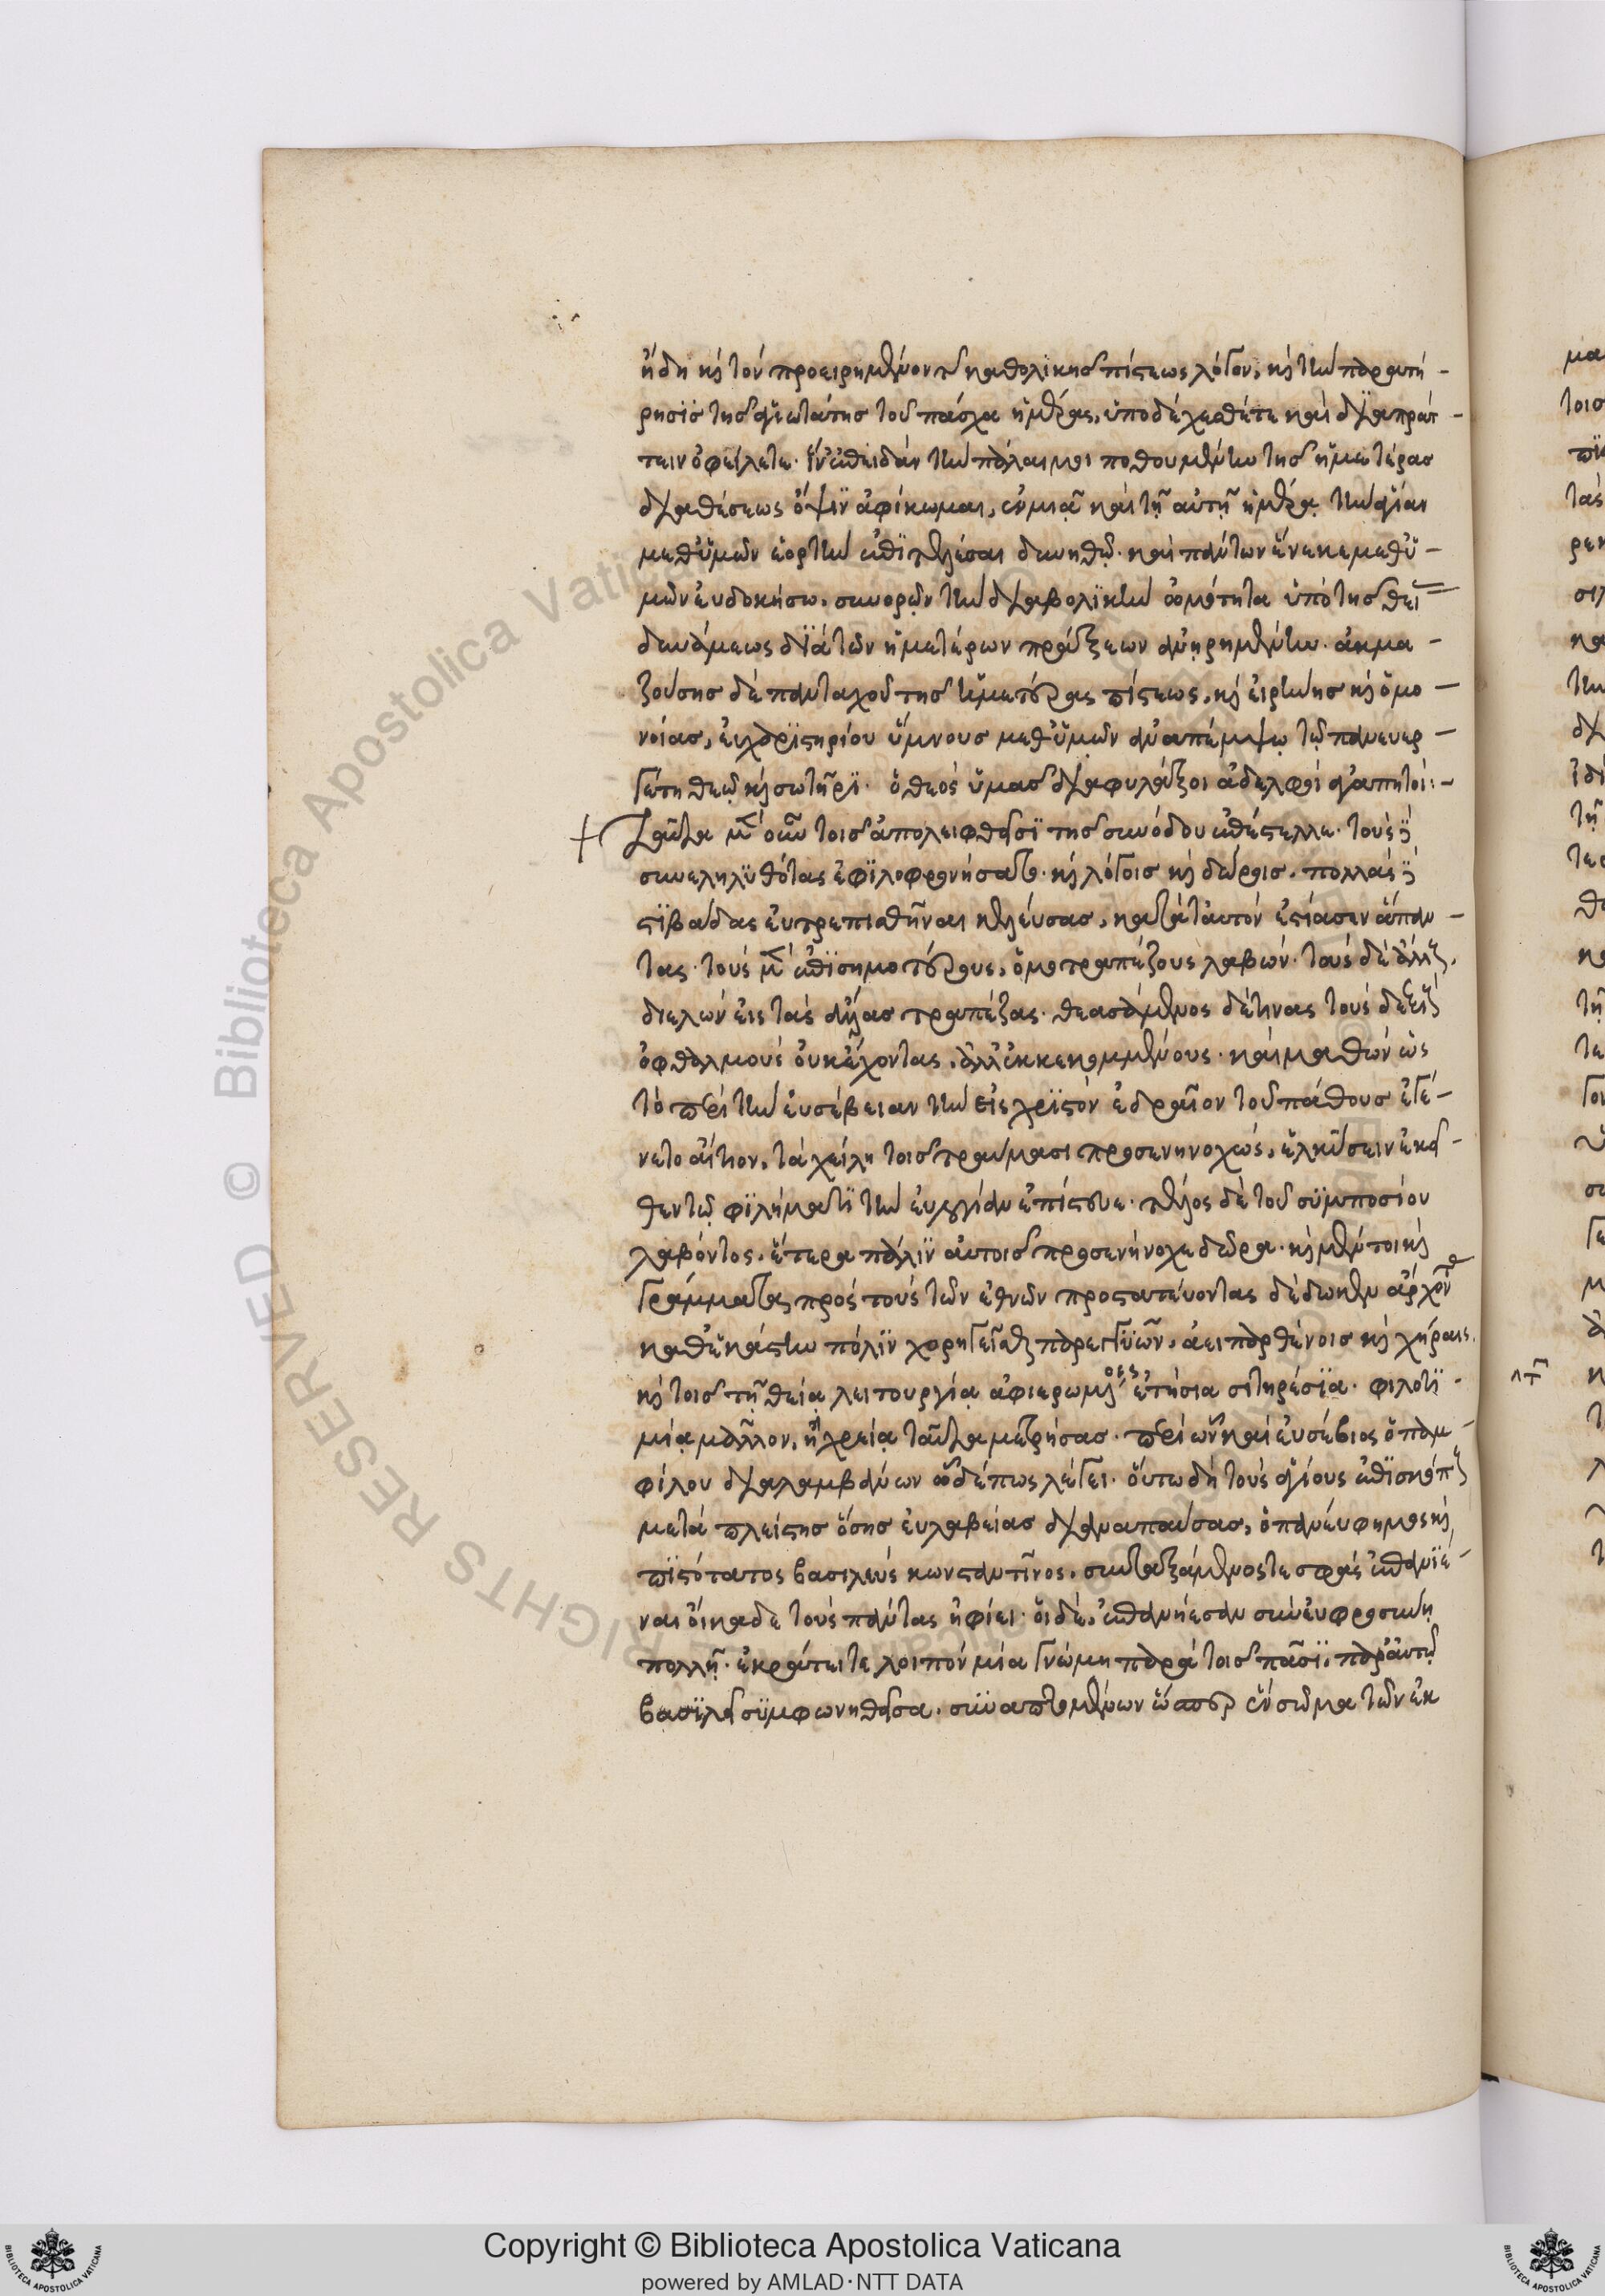 ἤδη καὶ τὸν προειρημένον τῆς καθολικῆς πίστεως λόγον, καὶ τὴν παρατή-
ρησιν τῆς ἁγιωτάτης τοῦ πάσχα ἡμέρας, ὑποδέχεσθέ τε καὶ διαπράτ-
τειν ὀφείλετε. ἵν' ἐπειδὰν τὴν πάλαι μοι ποθουμένην τῆς ὑμετέρας
διαθέσεως ὄψιν ἀφίκωμαι, ἐν μιᾷ καὶ τῇ αὐτῇ ἡμέρᾳ τὴν ἁγίαν
μεθ' ὑμῶν ἑορτὴν ἐπιτελέσαι δυνηθῶ. καὶ πάντων ἕνεκε μεθ' ὑ-
μῶν εὐδοκήσω. συνορῶν τὴν διαβολικὴν ὠμότητα ὑπὸ τῆς θεί
δυνάμεως διὰ τῶν ἡμετέρων πράξεων ἀνῃρημένην. ἀκμα-
ζούσης δὲ πανταχοῦ τῆς ὑμετέρας πίστεως, καὶ εἰρήνης καὶ ὁμο-
νοίας, εὐχαριστηρίου ὕμνους μεθ' ὑμῶν ἀναπέμψω τῷ πανευερ-
γέτῃ θεῷ καὶ σωτῆρι. ὁ θεὸς ὑμᾶς διαφυλάξοι ἀδελφοὶ ἀγαπητοί:-
Ταῦτα μὲν οὖν τοῖς ἀπολειφθεῖσι τῆς συνόδου ἐπέστελλε. τοὺς δὲ
συνεληλυθότας ἐφιλοφρονήσατο. καὶ λόγοις καὶ δώροις. πολλὰς δὲ
στιβάδας εὐτρεπισθῆναι κελεύσας, κατὰ ταυτὸν ἑστίασεν ἅπαν-
τας. τοὺς μὲν ἐπισημοτέρους, ὁμοτραπέζους λαβών. τοὺς δὲ ἄλλους,
διελὼν εἰς τὰς ἄλλας τραπέζας. θεασάμενος δέ τινας τοὺς δεξιοὺς
ὀφθαλμοὺς οὐκ ἔχοντας, ἀλλ' ἐκκεκομμένους. καὶ μαθὼν ὡς
τὸ περὶ τὴν εὐσέβειαν τὴν εἰς χριστὸν ἑδραῖον τοῦ πάθους ἐγέ-
νετο αἴτιον, τὰ χείλη τοῖς τραύμασι προσενηνοχώς, ἑλκύσειν ἐκεῖ-
θεν τῷ φιλήματι τὴν εὐλογίαν ἐπίστευε. τέλος δὲ τοῦ συμποσίου
λαβόντος. ἕτερα πάλιν αὐτοῖς προσενήνοχε δῶρα. καὶ μέντοι καὶ
γράμματα πρὸς τοὺς τῶν ἐθνῶν προστατεύοντας δέδωκεν ἄρχοντας
καθ' ἑκάστην πόλιν χορηγεῖσθαι παρεγγυῶν, ἀειπαρθένοις καὶ χήραις.
καὶ τοῖς τῇ θείᾳ λειτουργίᾳ ἀφιερωμένοις ἐτήσια σιτηρέσια. φιλοτι-
μίᾳ μᾶλλον, ἢ χρείᾳ ταῦτα μετρήσας. περὶ ὧν καὶ εὐσέβιος ὁ παμ-
φίλου διαλαμβάνων ὧδέ πως λέγει. οὕτω δὴ τοὺς ἁγίους ἐπισκόπους
μετὰ πλείστης ὅσης εὐλαβείας διαναπαύσας, ὁ πανεύφημος καὶ
πιστότατος βασιλεὺς κωνσταντῖνος. συνταξάμενός τε σφὰς ἐπανιέ-
ναι οἴκαδε τοὺς πάντας ἠφίει. οἱ δὲ, ἐπανήεσαν σὺν εὐφροσύνῃ
πολλῇ. ἐκράτει τε λοιπὸν μία γνώμη παρὰ τοῖς πᾶσι, παρ' αὐτῷ
βασιλεῖ συμφωνηθεῖσα. συναπτομένων ὥσπερ ἐν σῶμα τῶν ἐκ
Copyright © Biblioteca Apostolica Vaticana
powered by AMLAD·NTT DATA